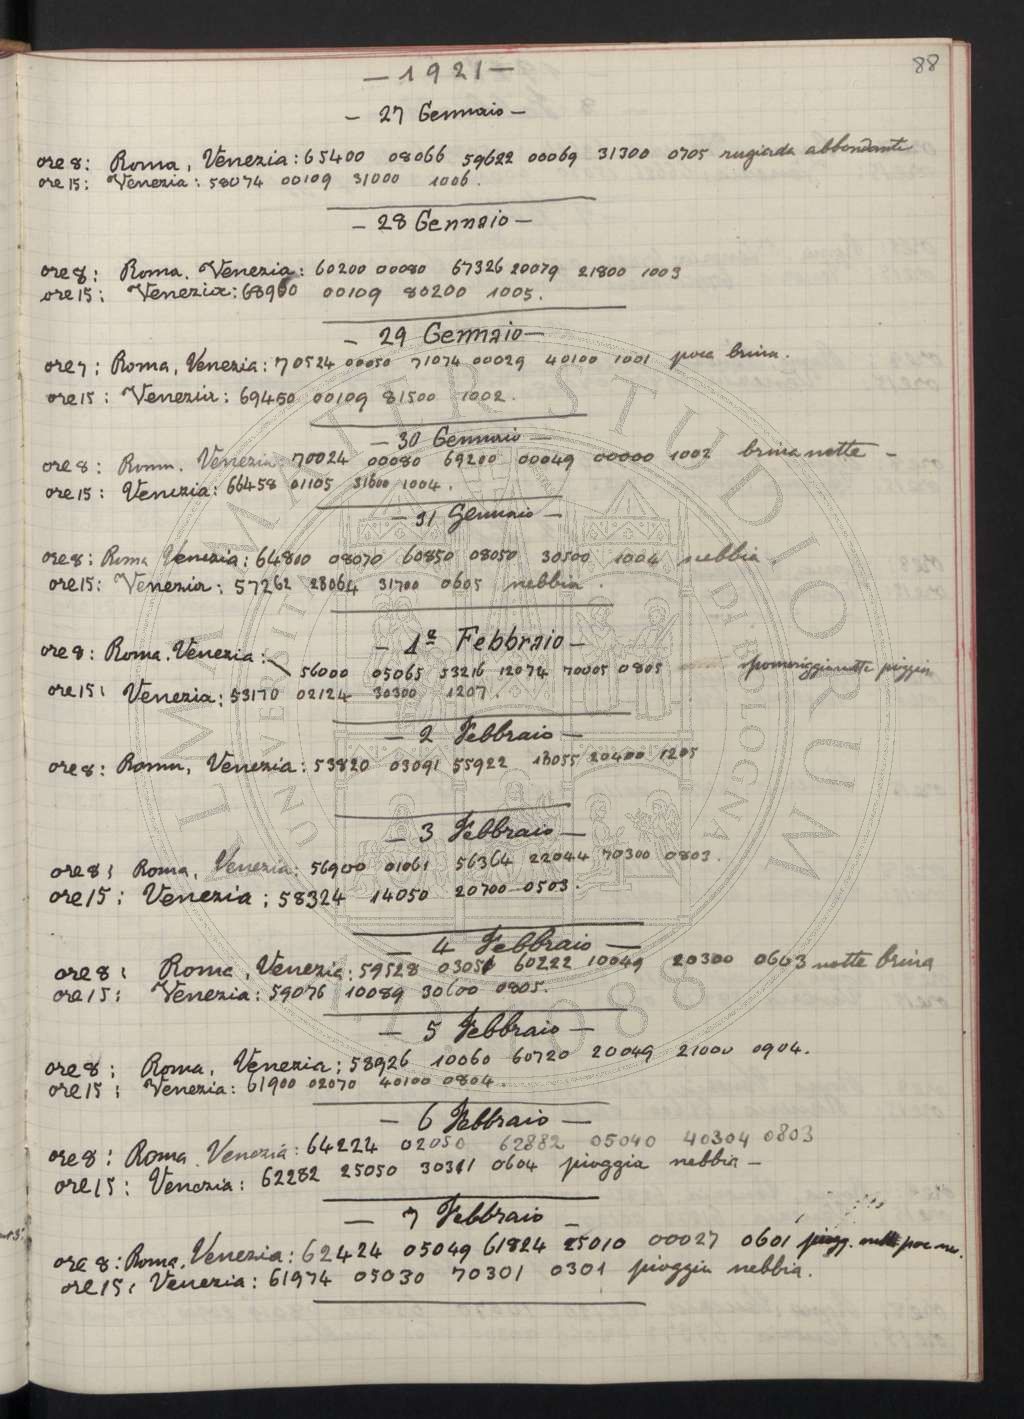 88
— 1921 —
— 27 Gennaio —
ore 8: Roma, Venezia: 65400 08066 59622 00069 31300 0705 rugiada abbondante
ore 15: Venezia: 58074 00109 31000 1006.
— 28 Gennaio —
ore 8: Roma. Venezia: 60200 00080 67326 20079 21800 1003
ore 15: Venezia: 68960 00109 80200 1005.
— 29 Gennaio —
ore 7: Roma, Venezia: 70524 00050 71074 00029 40100 1001 poca brina.
ore 15: Venezia: 69450 00109 81500 1002.
— 30 Gennaio —
ore 8: Roma. Venezia: 70024 00080 69200 00049 00000 1002 brina notte —
ore 15: Venezia: 66458 01105 31600 1004.
— 31 Gennaio —
ore 8: Roma Venezia: 64800 08070 60850 08050 30500 1004 nebbia.
ore 15: Venezia: 57262 28064 31700 0605 nebbia.
— 1ª Febbraio —
ore 8: Roma. Venezia: 56000 05065 53216 12074 70005 0805
ore 15: Venezia: 53170 02124 30300 1207.
— 2 Febbraio —
ore 8: Roma, Venezia: 53820 03091 55922 18055 20400 1205
— 3 Febbraio —
ore 8: Roma, Venezia: 56900 01061 56364 22044 70300 0803.
ore 15: Venezia: 58324 14050 20700 0503.
— 4 Febbraio —
ore 8: Roma, Venezia: 59528 03051 60222 10049 20300 0603 notte brina
ore 15: Venezia: 59076 10089 30600 0805.
— 5 Febbraio —
ore 8: Roma, Venezia: 58926 10060 60720 20049 21000 0904.
ore 15: Venezia: 61900 02070 40100 0804.
— 6 Febbraio —
ore 8: Roma. Venezia: 64224 02050 62882 05040 40304 0803
ore 15: Venezia: 62282 25050 30311 0604 pioggia nebbia —
— 7 Febbraio —
ore 8: Roma, Venezia: 62424 05049 61824 25010 00027 0601
ore 15: Venezia: 61974 05030 70301 0301 pioggia nebbia.
ALMA MATER STUDIORUM
UNIVERSITÀ DI BOLOGNA
1088